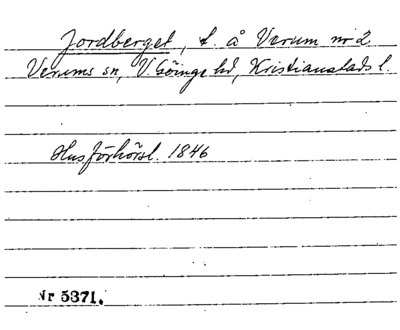 Jordberget, t. å Verum nr 2
Verums sn, V. Göinge hd, Kristianstads l.
Husförhörsl. 1846
Nr 5371.